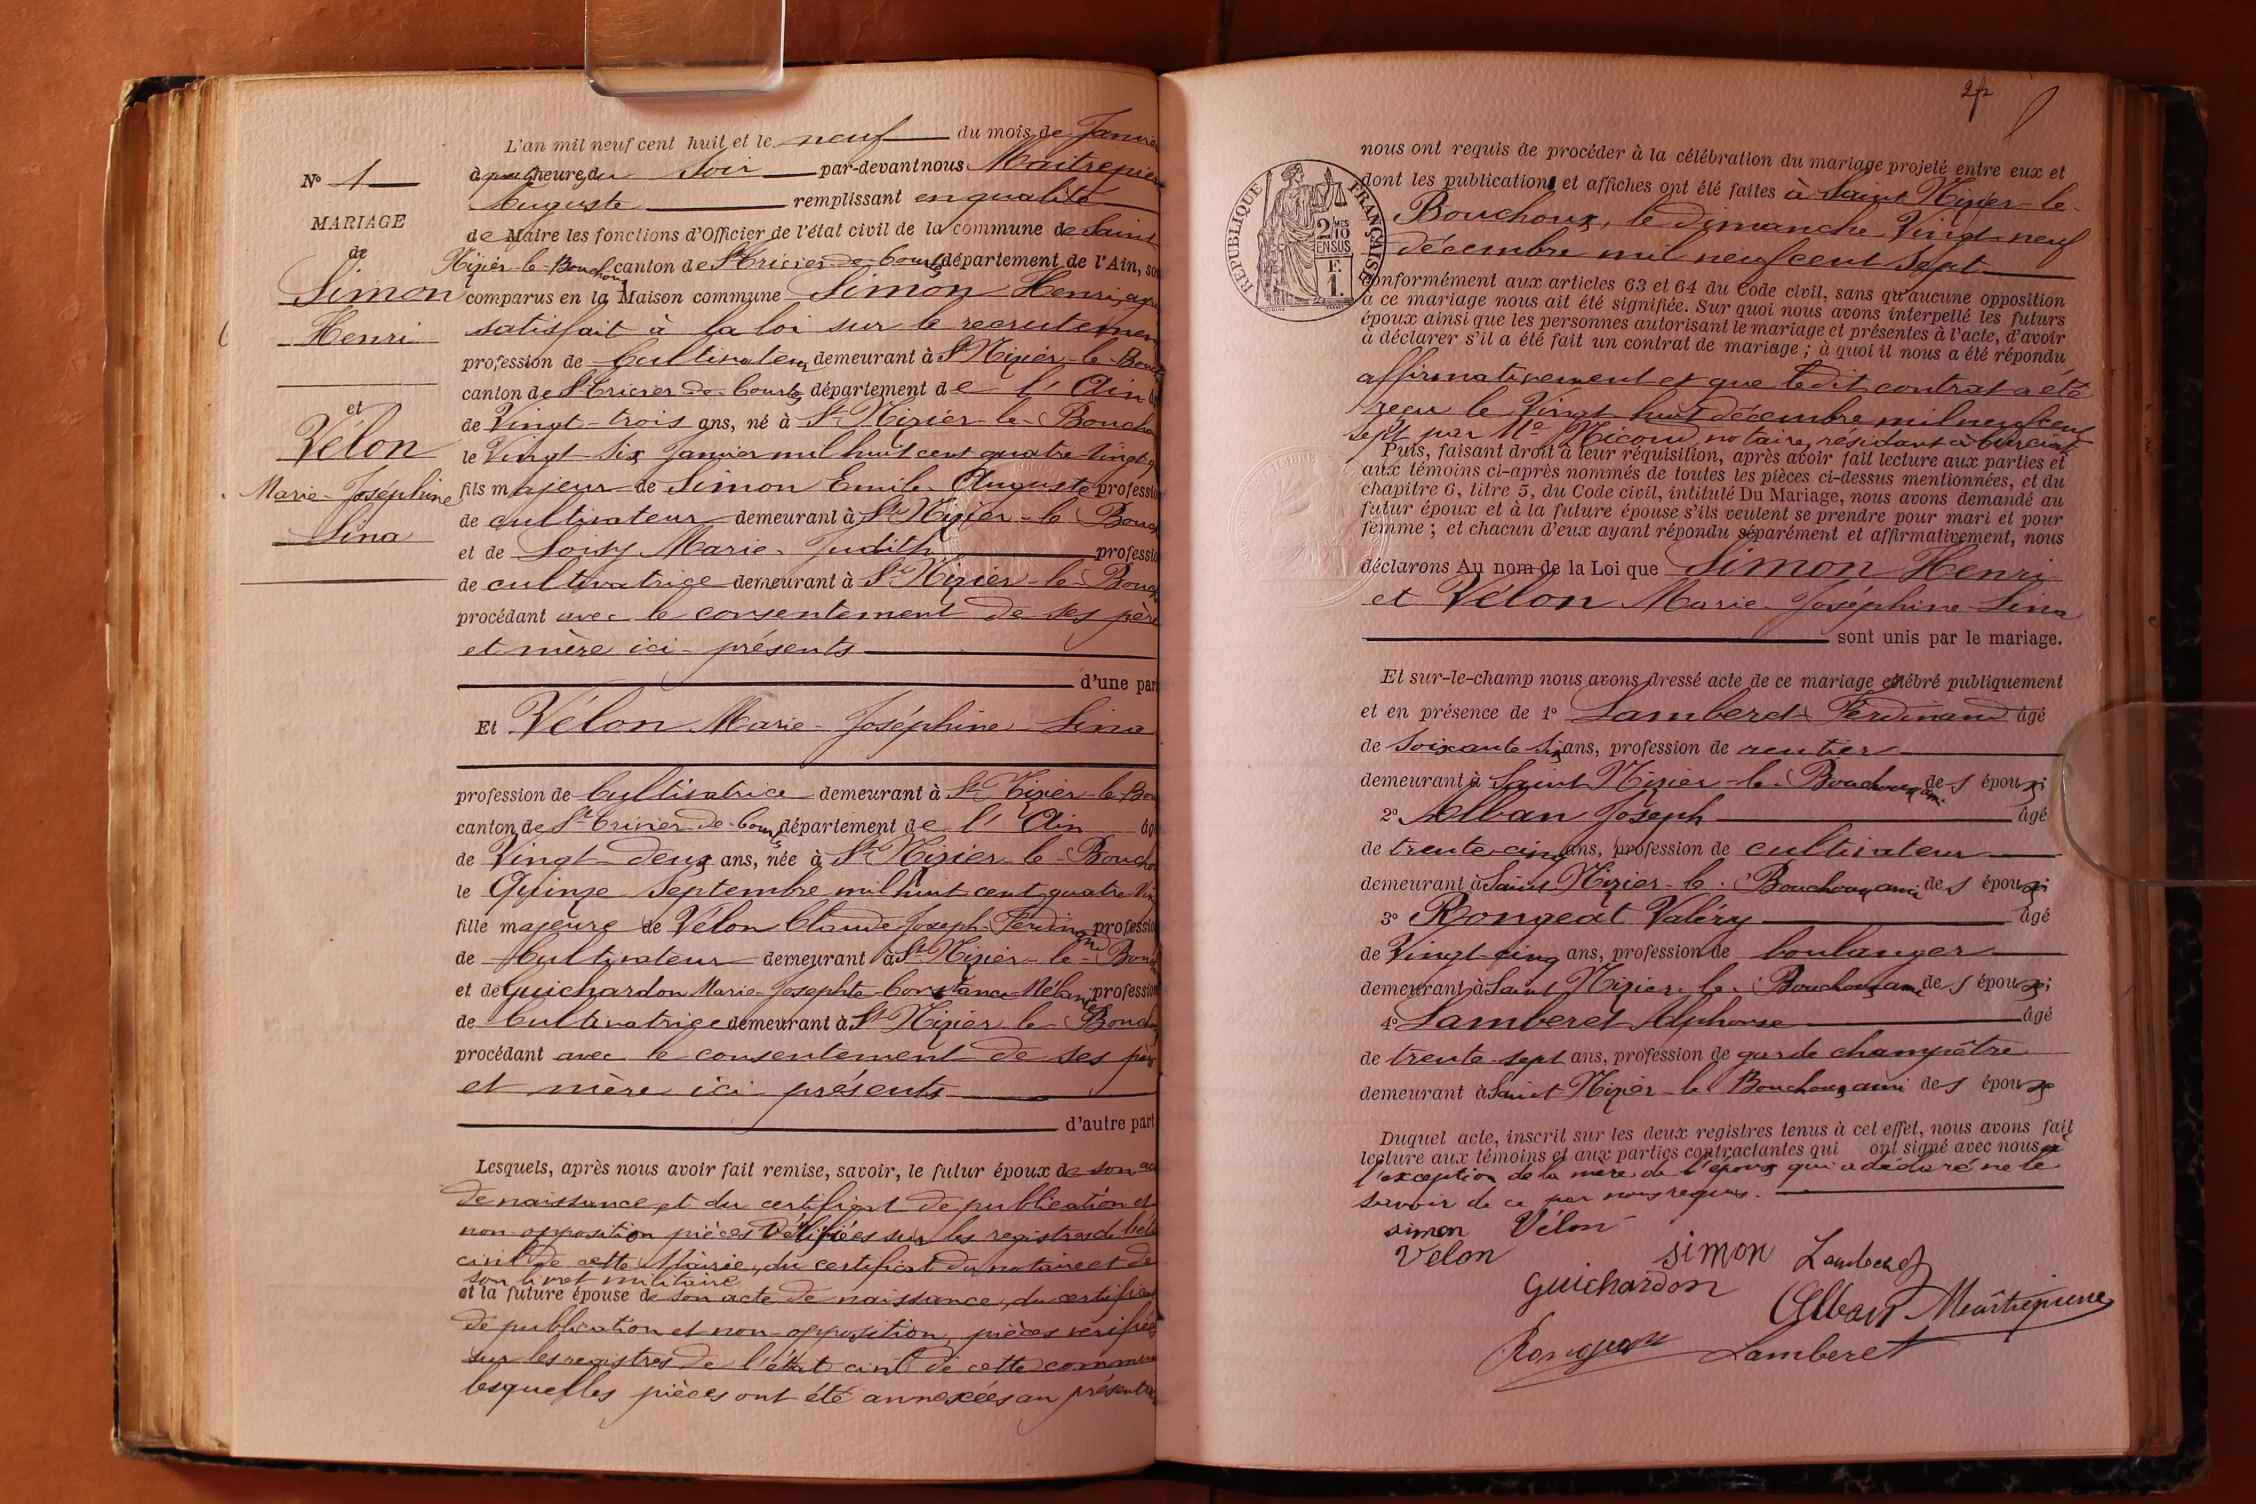 L'an mil neuf cent huit et le neuf du mois de Janvier
Nº 1
à une heure du soir par-devant nous Maitrepierre
Auguste remplissant en qualité
MARIAGE
de Maire les fonctions d'Officier de l'état civil de la commune de Saint
de
Nizier-le-Bouchoux canton de St Trivier-de-Courtes département de l'Ain, sont
Simon
comparus en la Maison commune Simon Henri, ayant
Henri
satisfait à la loi sur le recrutement
profession de Cultivateur demeurant à St Nizier-le-Bouch
canton de St Trivier-de-Courtes département de l'Ain
et
de Vingt-trois ans, né à St Nizier-le-Boucho
Vélon
le Vingt-six Janvier mil huit cent quatre-vingt-q
Marie-Joséphine
fils majeur de Simon Emile-Auguste profession
Lina
de cultivateur demeurant à St Nizier-le-Bouch
et de Loisy Marie-Judith profession
de cultivatrice demeurant à St Nizier-le-Bouch
procédant avec le consentement de ses père
et mère ici-présents
d'une part
Et Vélon Marie-Joséphine-Lina
profession de Cultivatrice demeurant à St Nizier-le-Bou
canton de St Trivier-de-Courtes département de l'Ain âgé
de Vingt-deux ans, née à St Nizier-le-Boucho
le Quinze Septembre mil huit cent quatre-vin
fille majeure de Vélon Claude-Joseph-Ferdinand profession
de Cultivateur demeurant à St Nizier-le-Bouch
et de Guichardon Marie-Josephte-Constance-Mélanie profession
de Cultivatrice demeurant à St Nizier-le-Bouch
procédant avec le consentement de ses père
et mère ici-présents
d'autre part
Lesquels, après nous avoir fait remise, savoir, le futur époux de son acte
de naissance et du certificat de publication et
non-opposition pièces vérifiées sur les registres de l'état
civil de cette Mairie, du certificat du notaire et de
son livret militaire
et la future épouse de son acte de naissance, du certificat
de publication et non-opposition, pièces vérifiées
sur les registres de l'état civil de cette commune
lesquelles pièces ont été annexées au présent
2
nous ont requis de procéder à la célébration du mariage projeté entre eux et
dont les publications et affiches ont été faites à Saint Nizier-le-
Bouchoux, le dimanche Vingt-neuf
décembre mil neuf cent sept
RÉPUBLIQUE FRANÇAISE
2/10 EN SUS
F. 1.
conformément aux articles 63 et 64 du Code civil, sans qu'aucune opposition
à ce mariage nous ait été signifiée. Sur quoi nous avons interpellé les futurs
époux ainsi que les personnes autorisant le mariage et présentes à l'acte, d'avoir
à déclarer s'il a été fait un contrat de mariage ; à quoi il nous a été répondu
affirmativement et que ledit contrat a été
reçu le Vingt-huit décembre mil neuf cent
sept par Me Nicoud, notaire, résidant à Curciat
Puis, faisant droit à leur réquisition, après avoir fait lecture aux parties et
aux témoins ci-après nommés de toutes les pièces ci-dessus mentionnées, et du
chapitre 6, titre 5, du Code civil, intitulé Du Mariage, nous avons demandé au
futur époux et à la future épouse s'ils veulent se prendre pour mari et pour
femme ; et chacun d'eux ayant répondu séparément et affirmativement, nous
déclarons Au nom de la Loi que Simon Henri
et Vélon Marie-Joséphine-Lina
sont unis par le mariage.
Et sur-le-champ nous avons dressé acte de ce mariage célébré publiquement
et en présence de 1º Lamberet Ferdinand âgé
de soixante-six ans, profession de rentier
demeurant à Saint Nizier-le-Bouchoux ami des époux;
2º Alban Joseph âgé
de trente-cinq ans, profession de cultivateur
demeurant à Saint Nizier-le-Bouchoux, ami des époux;
3º Rongeat Valéry âgé
de Vingt-cinq ans, profession de boulanger
demeurant à Saint Nizier-le-Bouchoux ami des époux;
4º Lamberet Alphonse âgé
de trente-sept ans, profession de garde champêtre
demeurant à Saint Nizier-le-Bouchoux ami des époux
Duquel acte, inscrit sur les deux registres tenus à cet effet, nous avons fait
lecture aux témoins et aux parties contractantes qui ont signé avec nous à
l'exception de la mère de l'époux qui a déclaré ne le
savoir de ce par nous requis.
simon Vélon
Velon simon Lamberet
Guichardon
Alban Maîtrepierre
Rongeat Lamberet